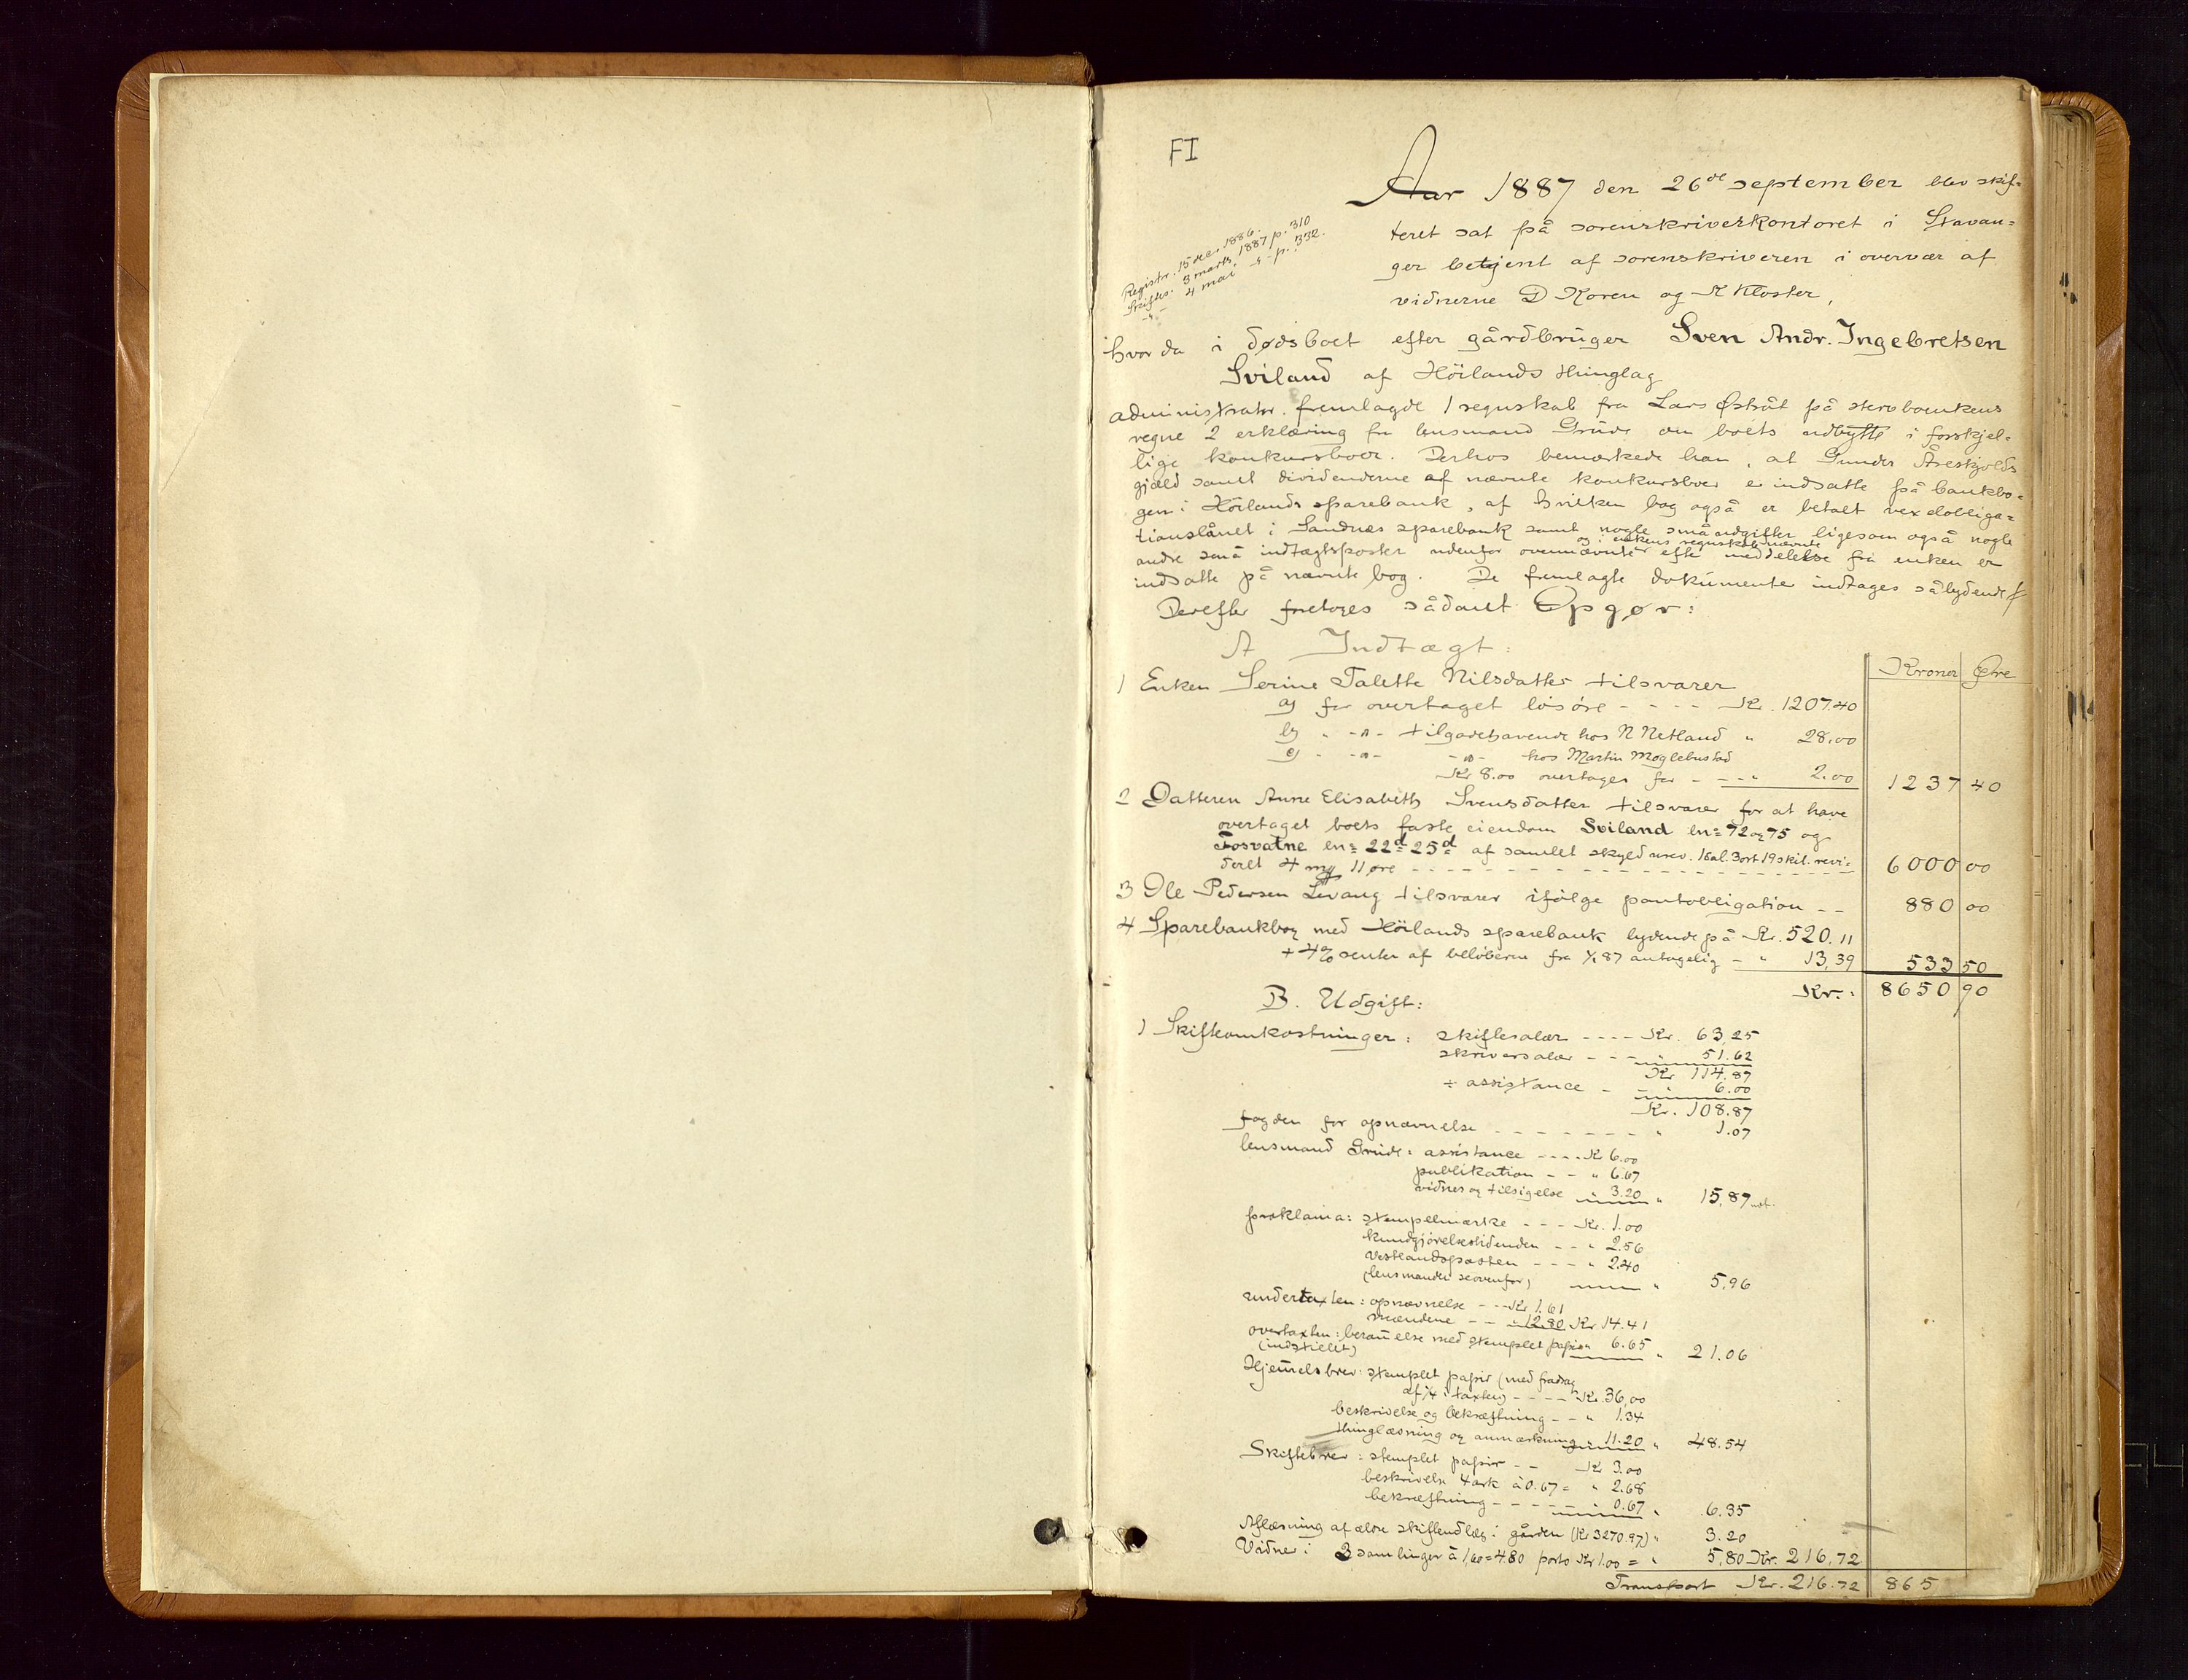 FI
Aar 1887 den 26de september blev skif-
teret sat på sorenskriverkontoret i Stavan-
ger betjent af sorenskriveren i overvær af
vidnerne D Koren og K Kloster,
Registr. 15 dec. 1886.
Skiftes. 3 marts 1887 p. 310
-"- 4 mai -"- p. 332.
hvor da i dødsboet efter gårdbruger Sven Andr. Ingebretsen
Sviland af Höilands thinglag
administrator fremlagde 1 regnskab fra Lars Østråt på stervboenkens
vegne 2 erklæring fra lensmand Grude om boets udbytte i forskjel-
lige konkursboer. Derhos bemærkede han, at Gunder Åreskjolds
gjæld samt dividenderne af nævnte konkursboer er indsatte på bankbo-
gen i Höilands sparebank, af hvilken bog også er betalt vexelobliga-
tionslånet i Sandnes sparebank samt nogle småudgifter ligesom også nogle
og i enkens regnskab nævnte
andre små indtægtsposter udenfor ovennævnte efter meddelelse fra enken er
indsatte på nævnte bog. De fremlagte dokumenter indtages sålydende
Derefter foretoges sådant Opgør:
A Indtægt:
Kroner Øre
1 Enken Serine Talette Nilsdatter tilsvarer
a) for overtaget løsøre - - - - Kr. 1207.40
b) " -"- tilgodehavende hos N Netland " 28.00
c) - -"- -"- hos Martin Moglebustad
Kr 8.00 overtages for - - - " 2.00 1237 40
2 Datteren Anne Elisabeth Svensdatter tilsvarer for at have
overtaget boets faste eiendom Sviland en= 72 og 75 og
Fosvatne en= 22d 25d af samlet skyld urev. 1dal. 3ort 19 skil. revi-
deret 4 mg 11 øre - - - - - - 6000 00
3 Ole Pedersen Levang tilsvarer ifølge pantobligation - - 880 00
4 Sparebankbog med Höilands sparebank lydende på Kr. 520.11
+ 4% renter af beløberne fra 1/1 87 antagelig - " 13,39 533 50
Kr.: 8650 90
B. Udgift:
1 Skifteomkostninger: skiftesalær - - - - Kr. 63,25
skriversalær - - - " 51.62
Kr 114.87
÷ assistance - - " 6.00
Kr. 108.87
fogden for opnævnelse - - - - - - - " 1.07
lensmand Grude: assistance - - - - Kr 6.00
publikation - - " 6.67
vidner og tilsigelse " 3.20 " 15,87
proklama: stempelmærke - - - Kr. 1.00
kundgjørelsestidenden - - " 2.56
Vestlandsposten - - - - " 2.40
(lensmanden se ovenfor) " 5,96
undertaxten: opnævnelse - - Kr 1.61
mændene - - " 12.80 Kr 14.41
overtaxten: berammelse med stemplet papir " 6.65 " 21.06
(indstillet)
Hjemmelsbrev: stemplet papir (med fradrag
af 1/4 i taxten) - - - - Kr. 36,00
beskrivelse og bekræftning - - " 1.34
thinglæsning og anmærkning " 11.20 " 48.54
Skiftebrev: stemplet papir - - Kr 3.00
beskrivelse 4 ark à 0.67 = " 2.68
bekræftning - - - - - " 0.67 " 6.35
Aflæsning af ældre skifteudlæg i gården (Kr 3270.97) " 3.20
Vidner i 3 samlinger à 1,60 = 4.80 porto Kr 1.00 = " 5,80 Kr. 216,72
Transport Kr. 216.72 865